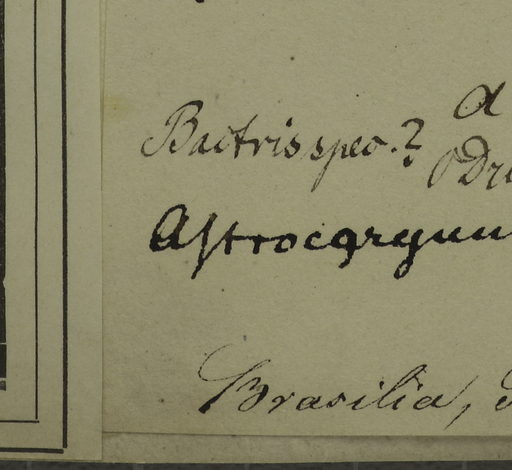 Bactris spec.?
Astrocaryum
Brasilia,